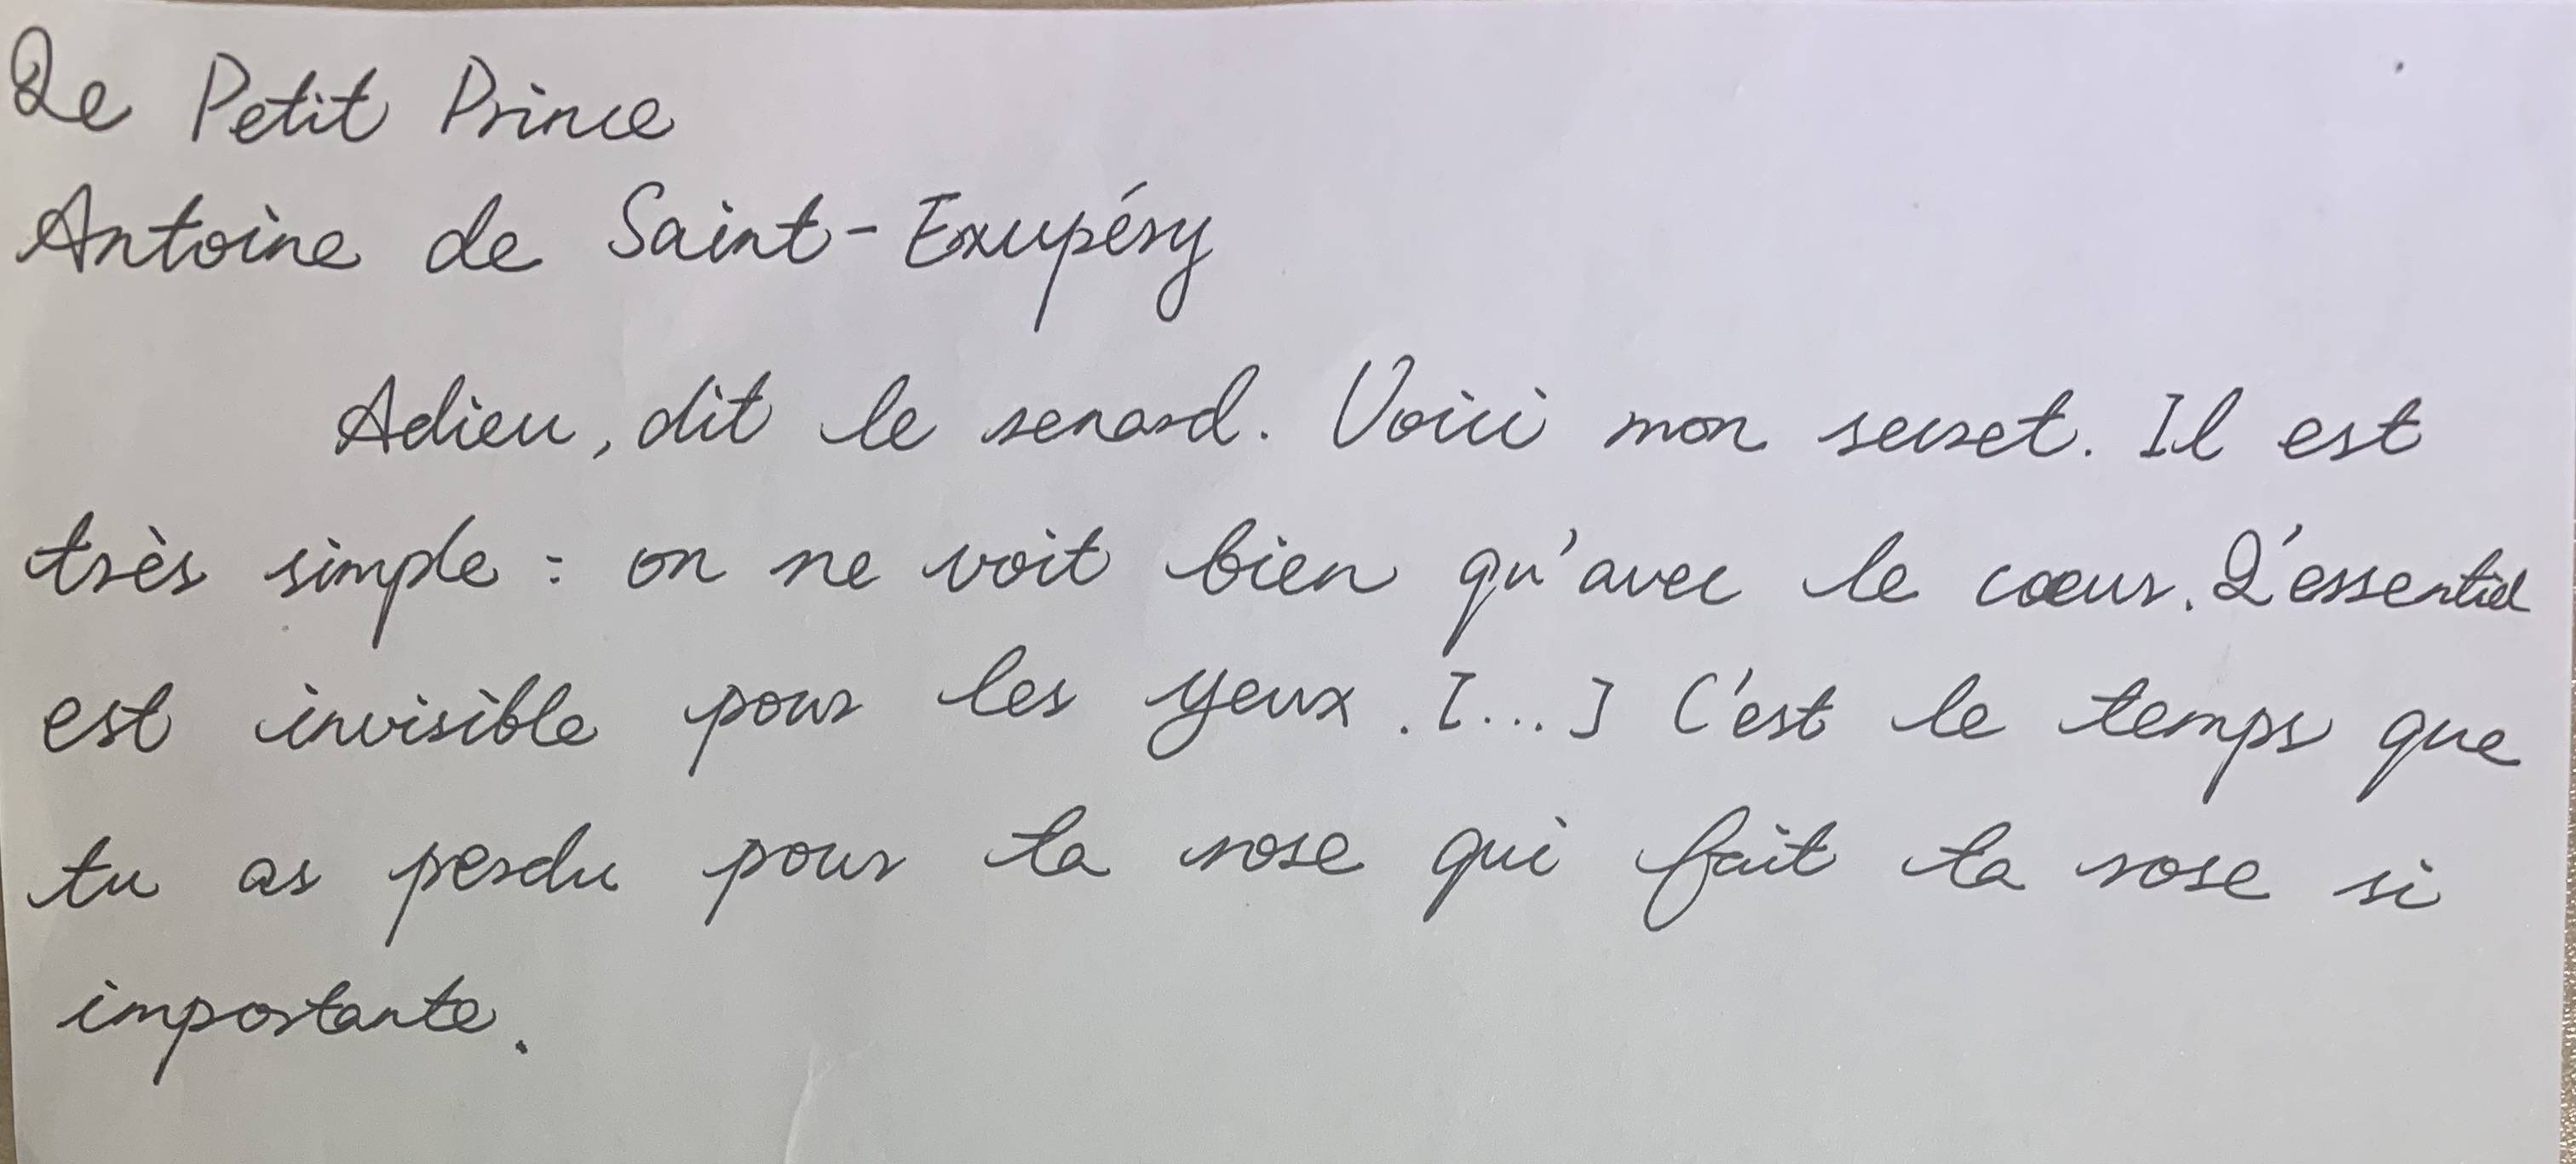 Le Petit Prince
Antoine de Saint-Exupéry
Adieu, dit le renard. Voici mon secret. Il est
très simple : on ne voit bien qu'avec le cœur. L'essentiel
est invisible pour les yeux. [...] C'est le temps que
tu as perdu pour ta rose qui fait ta rose si
importante.